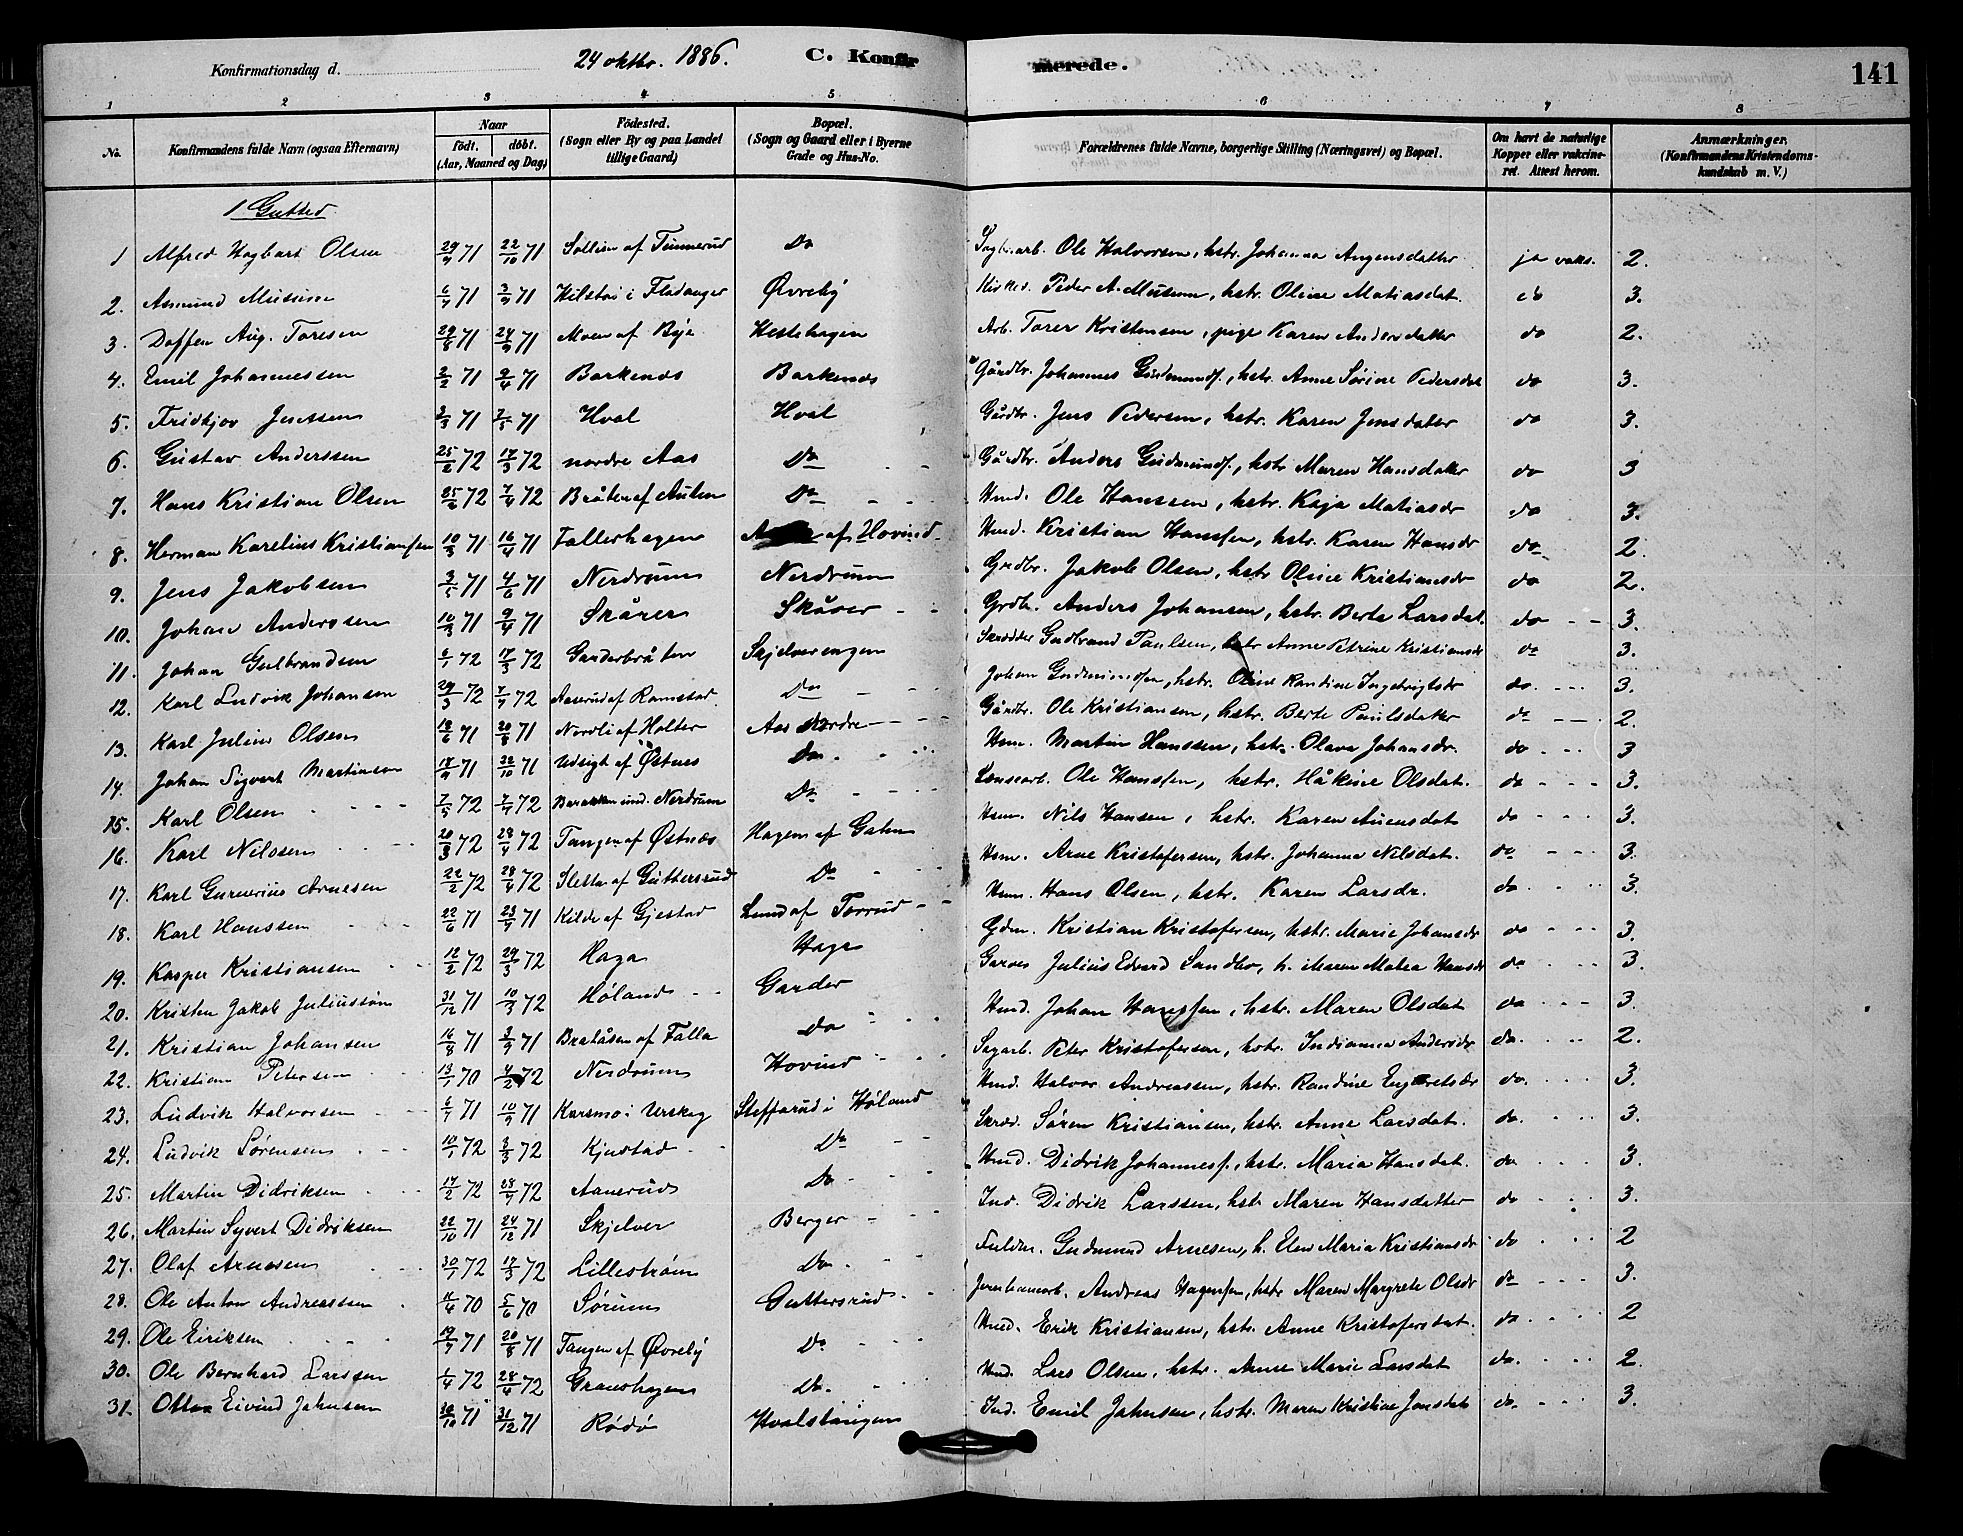 Konfirmationsdag d. 24 oktbr. 1886. C. Konfirmerede. 141
1 2 3 4 5 6 7 8
No. Konfirmandens fulde Navn (ogsaa Efternavn) Naar födt. döbt. (Aar, Maaned og Dag) Födested. (Sogn eller By og paa Landet tillige Gaard) Bopæl. (Sogn og Gaard eller i Byerne Gade og Hus-No. Forældrenes fulde Navne, borgerlige Stilling (Næringsvei) og Bopæl. Om havt de naturlige Kopper eller vakcineret. Attest herom. Anmærkninger. (Konfirmandens Kristendomskundskab m. V.)
1 Gutter
1 Alfred Hagbart Olsen 29/9 71 22/10 71 Sollien af Tinnerud Do Sagbr.arb. Ole Halvorsen, hstr. Johanna Angensdatter ja vaks. 2.
2. Asmund Museum 6/7 71 3/9 71 i Fladanger Øvreby Peder A. Museum, hstr. Oline Matiasdat. do 3.
3. Daffen Aug. Toresen 29/8 71 24/9 71 Moen af Bye Hestehagen Arb. Torer Kristensen, pige Karen Andersdatter do 2.
4. Emil Johannessen 2/2 71 9/4 71 Barkenes Barkenes Gårdbr. Johannes Gudmunds., hstr. Anne Sørine Pedersdat do 3.
5. Fridtjov Jenssen 3/3 71 7/5 71 Hval Hval Gårdbr. Jens Pedersen, hstr. Karen Jensdatter do 3.
6. Gustav Anderssen 25/2 72 17/3 72 nordre Aas Do Gårdbr. Anders Gudmunds., hstr Maren Hansdatter do 3
7. Hans Kristian Olsen 25/2 72 7/4 72 Bråten af Auten Do Hmd. Ole Hanssen, hstr. Kaja Matiasdr do 3.
8. Herman Karelius Kristiansen 10/3 71 16/4 71 Fallerhagen af Hovind Hmd. Kristian Hanssen, hstr. Karen Hansdr do 2.
9. Jens Jakobsen 3/5 71 4/6 71 Nerdrum Nerdrum Grdbr. Jakob Olsen, hstr Oline Kristiansdr do 2.
10. Johan Anderssen 10/3 71 9/4 71 Skårer Skårer Grdb. Anders Johansen, hstr. Berte Larsdat. do 3.
11. Johan Gulbrandsen 6/1 72 17/3 72 Garderbråten Skjelverengen Skrædder Gudbrand Paulsen, hstr Anne Petrine Kristiansdr do 3.
12. Karl Ludvik Johansen 29/3 72 7/7 72 Aaserud af Ramstad. Do Johan Gudmundsen, hstr. Oline Randine Ingebrigtsdr do. 3.
13. Karl Julius Olsen 13/6 71 20/8 71 Nordli af Holter Aas Nordre Gårdbr. Ole Kristiansen, hstr. Berte Paulsdatter do 2.
14. Johan Sigvert Martinsen 18/9 71 22/10 71 Udsigt af Østnes Do. Hsm. Martin Hanssen, hstr. Olava Johansdr. do 3
15. Karl Olsen 7/5 72 7/7 72 Barakken und. Nerdrum Do Lensearb. Ole Hanssen, hstr. Håkine Olsdat. do 3.
16. Karl Nilssen 20/3 72 28/4 72 Tangen af Østnæs Hagen af Gahn Hsm. Nils Hansen, hstr. Karen Auensdat do 3.
17. Karl Gunerius Arnesen 22/2 72 28/4 72 Sletta af Guttersrud Do Hsm. Arne Kristofersen, hstr. Johanna Nilsdat. do 3.
18. Karl Hanssen 22/6 71 23/7 71 Kilde af Gjestad Lund af Torrud Hsm. Hans Olsen, hstr. Karen Larsdr. do 3.
19. Kasper Kristiansen 12/2 72 29/3 72 Haga Haga Gdm. Kristian Kristofersen, hstr. Marie Johansdr do 3.
20. Kristen Jakob Juliussøn 31/12 71 10/3 72 Høland Garder Garver Julius Edvard Sandbo, h. Maren Matea Hansdr do. 3.
21. Kristian Johansen 16/8 71 3/9 71 Bratåsen af Falla Do Hmd. Johan Hanssen, hstr. Maren Olsdat do 3.
22. Kristian Petersen 13/1 70 4/2 72 Nerdrum Hovind Sagarb. Peter Kristofersen, hstr. Indianna Andersdr do. 2.
23. Ludvik Halvorsen 6/7 71 10/9 71 Karsmo i Urskog Steffarud i Høland Hmd. Halvor Andreassen, hstr. Randine Engebretsdr do. 3.
24. Ludvik Sørensen 10/1 72 3/3 72 Kjustad Do Skræd. Søren Kristiansen, hstr. Anne Larsdat. do. 3.
25. Martin Didriksen 14/2 72 28/4 72 Aanerud Do Hmd. Didrik Johanness., hstr. Maria Hansdat. do 3.
26. Martin Syvert Didriksen 22/10 71 24/12 71 Skjelver Berger Ind. Didrik Larssen, hstr Maren Hansdatter do 3.
27. Olaf Arnesen 30/1 72 17/3 72 Lillestrøm Do. Gudmund Arnesen, h. Elen Maria Kristiansdr do 2
28. Ole Anton Andreassen 11/4 70 5/6 70 Sørum Guttersrud Jernbanearb. Andreas Hagensen, hstr Maren Margrete Olsdr do 3.
29. Ole Eiriksen 19/7 71 20/8 71 Tangen af Øvreby Do Hmd. Erik Kristiansen, hstr. Anne Kristofersdat. do 2
30. Ole Bernhard Larssen 1/4 72 28/4 72 Granshagen Do. Hmd. Lars Olsen, hstr. Anne Marie Larsdat do. 2.
31. Otto Eivind Jahnsen 30/10 71 31/12 71 Rødø Hvalstangen Ind. Emil Jahnsen, hstr. Maren Kristine Jonsdat do. 3.